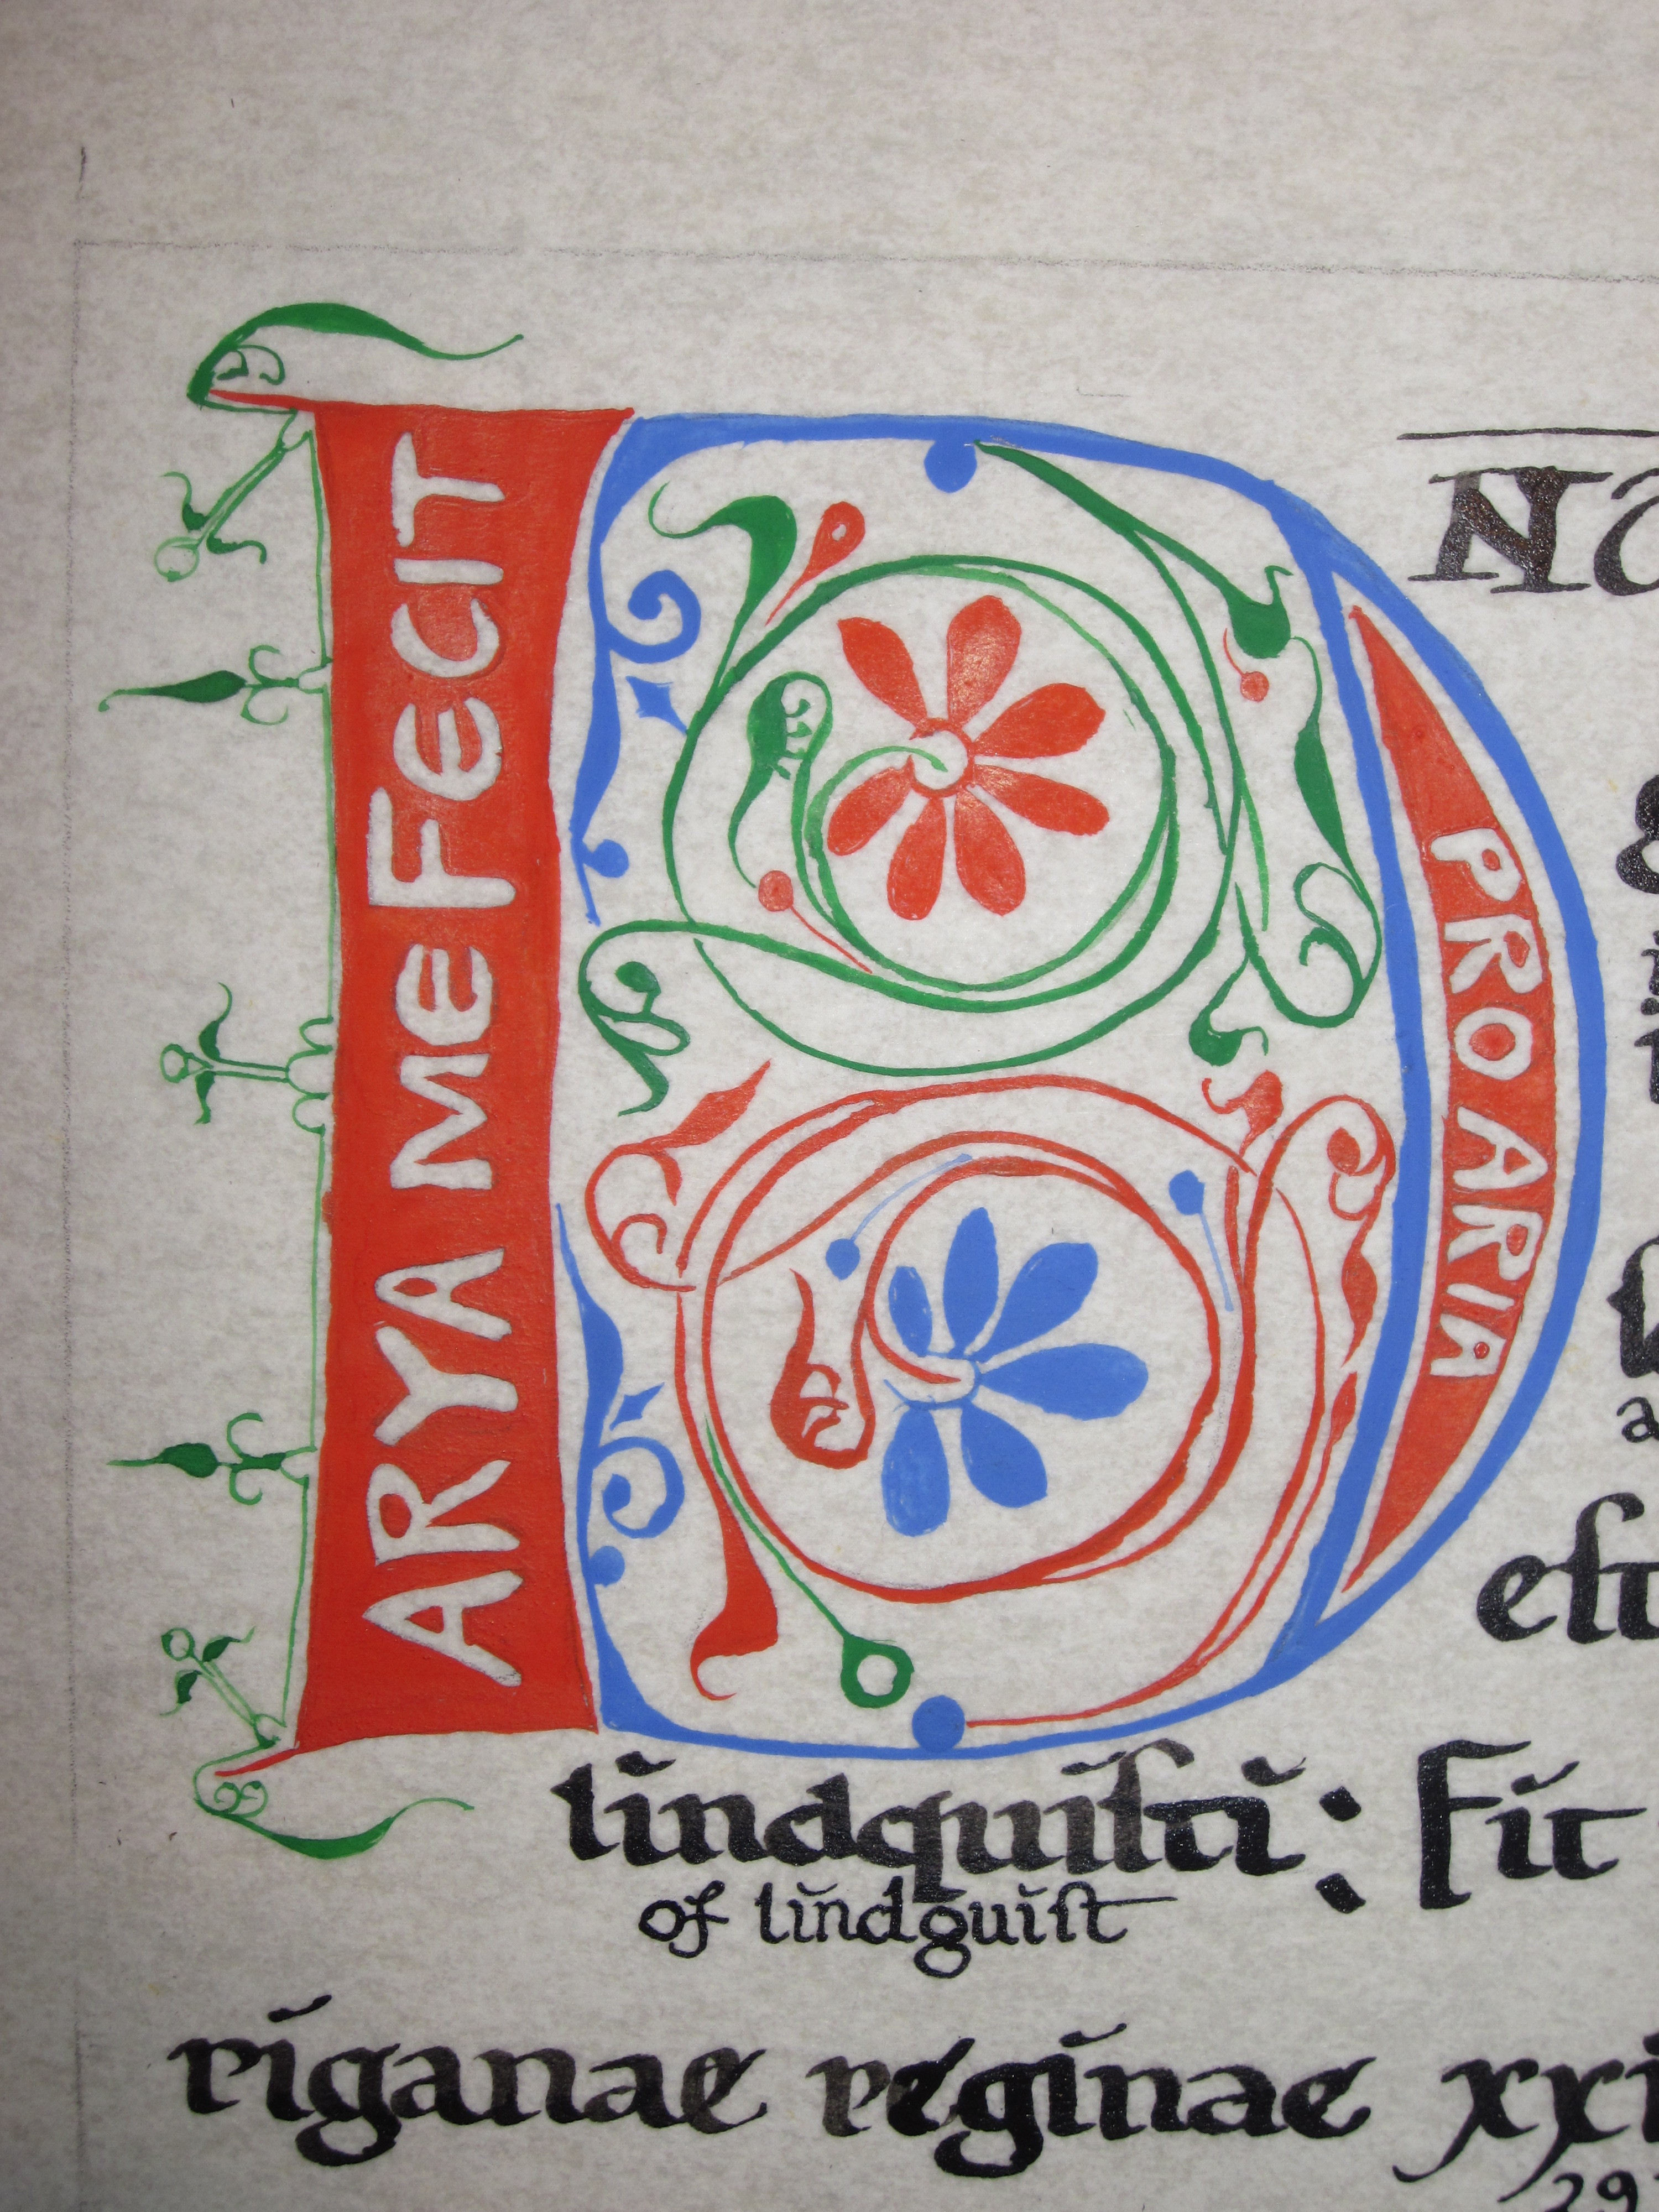 ARYA ME FECIT
PRO ARIA
D
est
lindquisti: Fit
of lindguist
riganae reginae xxi